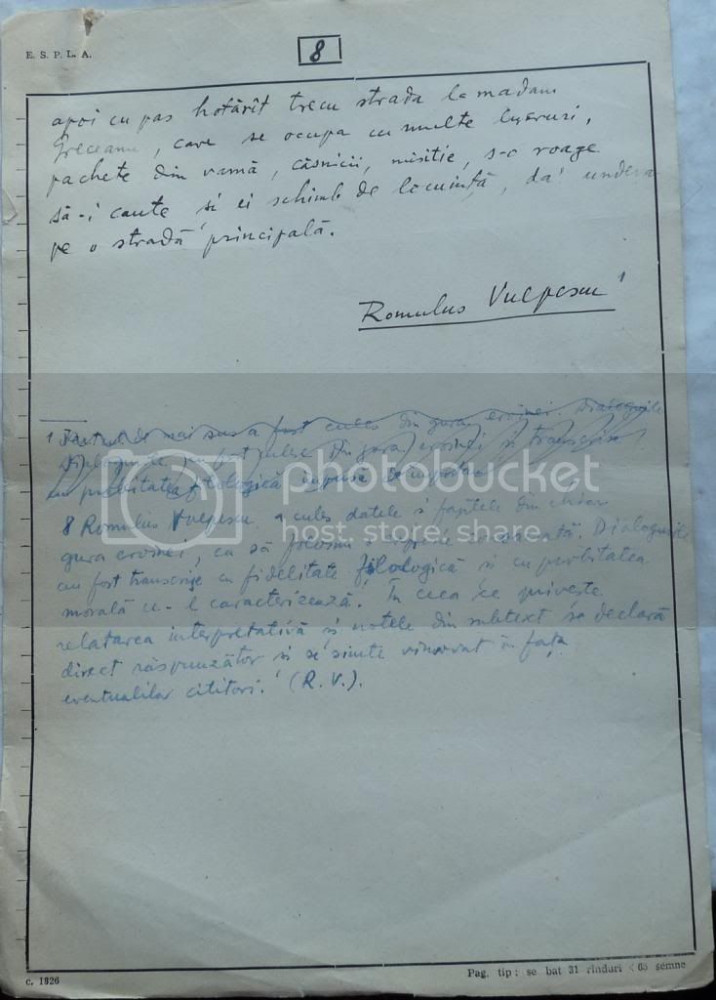 E. S. P. L. A.
8
apoi cu pas hotărît trecu strada la madam
Greceanu, care se ocupa cu multe lucruri,
pachete din vamă, căsnicii, misitie, s-o roage
să-i caute și ei schimb de locuință, da' undeva
pe o stradă principală.
Romulus Vulpescu 1
1 mai sus a fost cules din gura eroinei. Dialogurile
din gura eroinei și transcrise
cu probitatea filologică
photobucket
host. store. share.
8 Romulus Vulpescu a cules datele și faptele din chiar
gura eroinei, ca să folosim o Dialogurile
au fost transcrise cu fidelitate filologică și cu probitatea
morală ce-l caracterizează. În ceea ce privește
relatarea interpretativă și notele din subtext se declară
direct răspunzător și se simte vinovat în fața
eventualilor cititori. (R. V.).
c. 1826
Pag. tip: se bat 31 rînduri × 65 semne